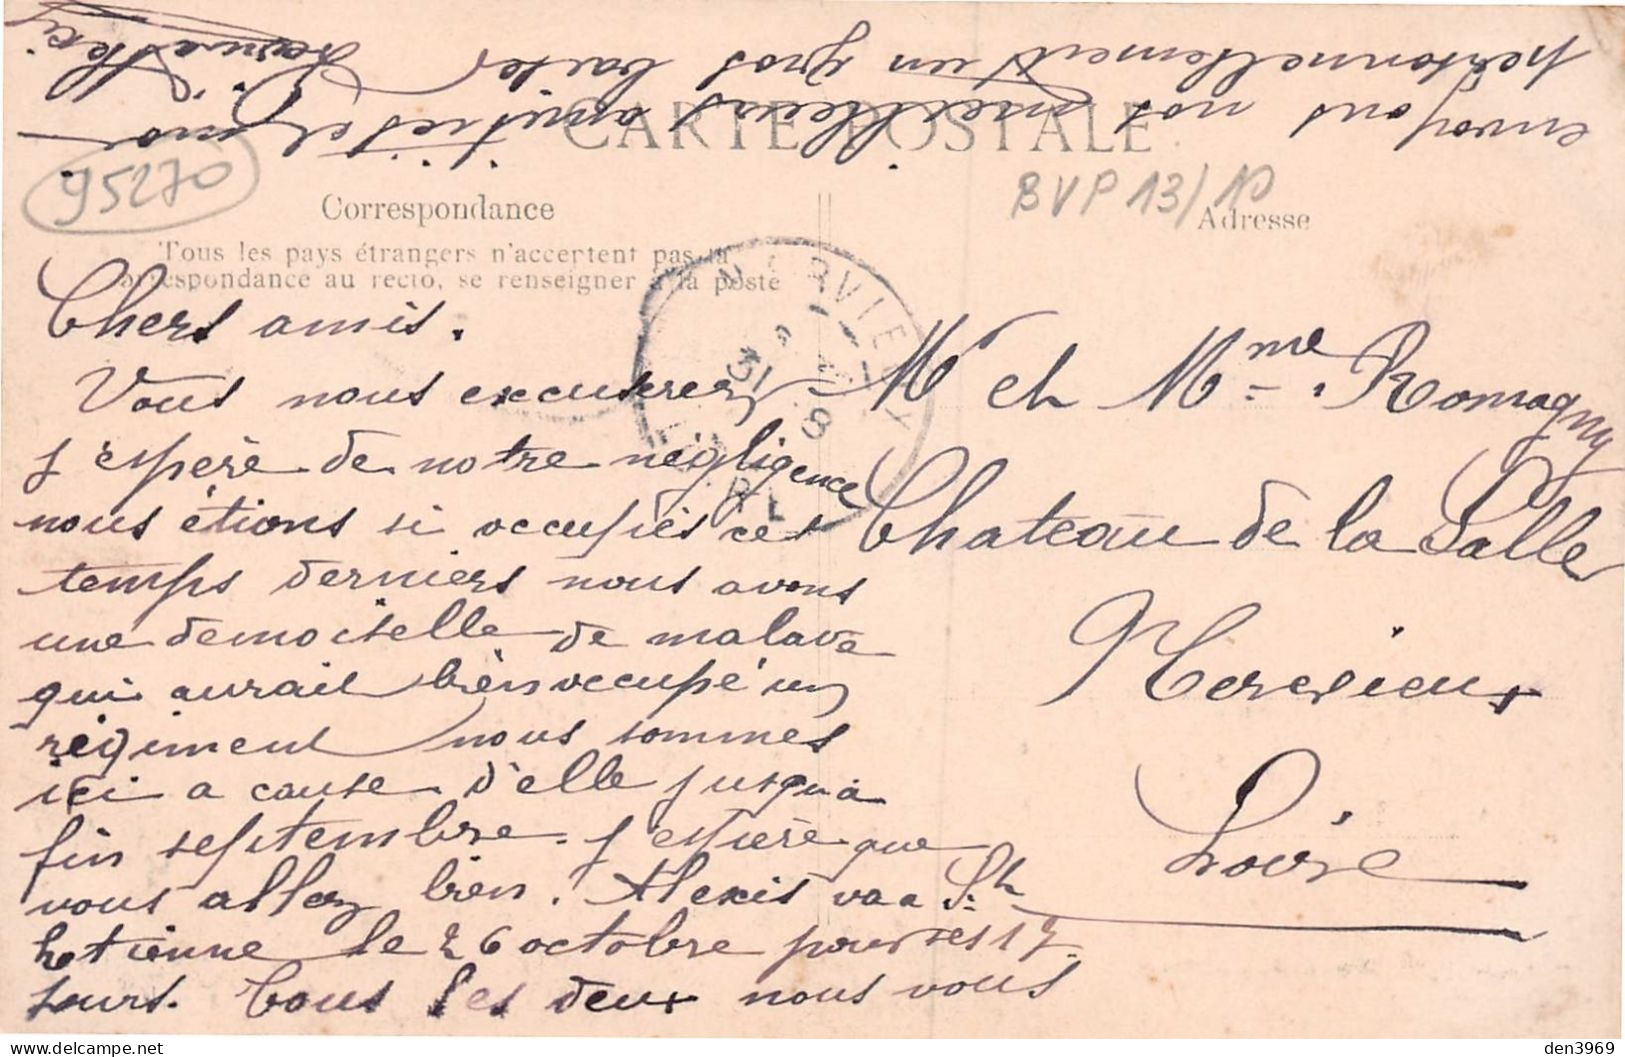 CARTE POSTALE
95270
BVP 13/10
Correspondance
Adresse
Tous les pays étrangers n'acceptent pas la
correspondance au recto, se renseigner à la poste
Chers amis.
Vous nous excuserez
j'espère de notre négligence
nous étions si occupés ces
temps derniers nous avons
une demoiselle de malave
qui aurait bien occupé un
régiment nous sommes
ici a cause d'elle jusqu'à
fin septembre. j'espère que
vous allez bien. Alexis va a St
hetienne le 26 octobre pour ses 17
jours. Tous les deux nous vous
envoyons nos meilleurs amitiés et moi
personnellement un gros baiser
M et Mme Romagny
Château de la Salle
Nervieux
Loire
NERVIEUX
31
8
den3969